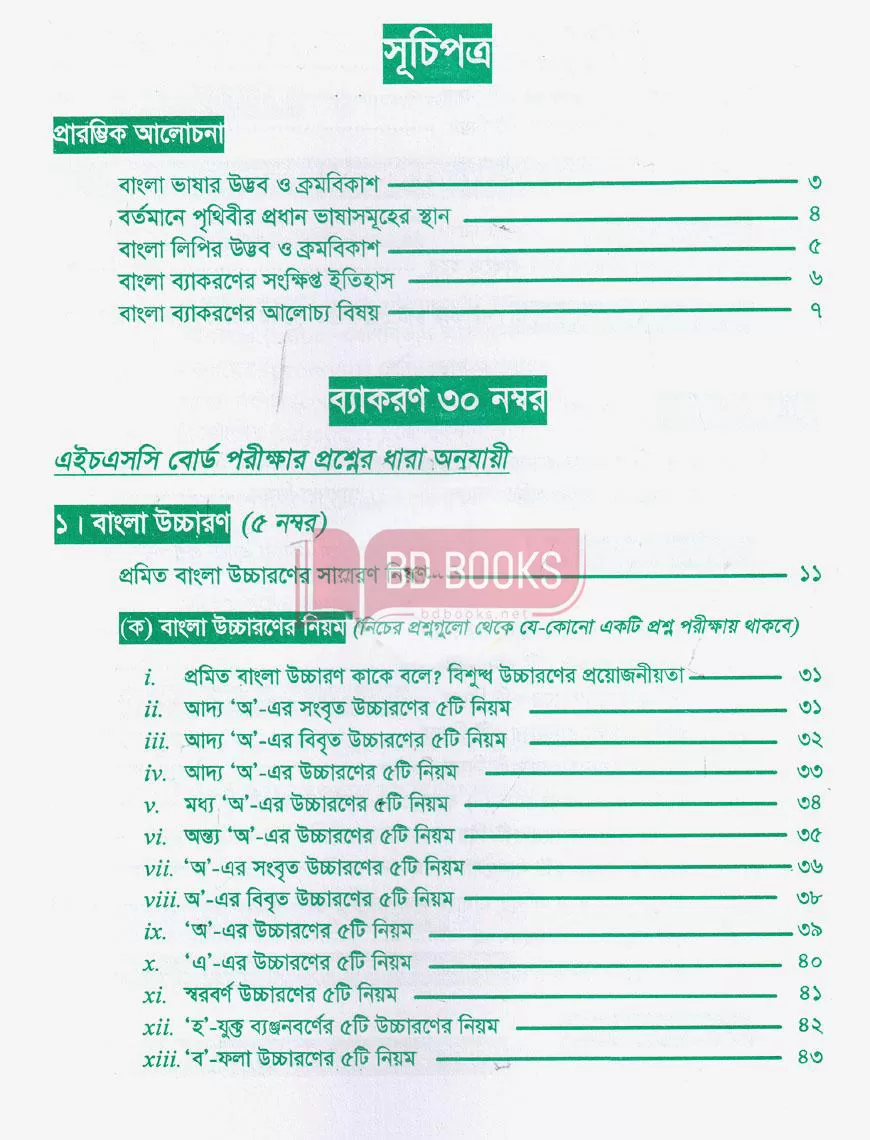 সূচিপত্র
প্রারম্ভিক আলোচনা
বাংলা ভাষার উদ্ভব ও ক্রমবিকাশ ৩
বর্তমানে পৃথিবীর প্রধান ভাষাসমূহের স্থান ৪
বাংলা লিপির উদ্ভব ও ক্রমবিকাশ ৫
বাংলা ব্যাকরণের সংক্ষিপ্ত ইতিহাস ৬
বাংলা ব্যাকরণের আলোচ্য বিষয় ৭
ব্যাকরণ ৩০ নম্বর
এইচএসসি বোর্ড পরীক্ষার প্রশ্নের ধারা অনুযায়ী
১। বাংলা উচ্চারণ (৫ নম্বর)
BD BOOKS
প্রমিত বাংলা উচ্চারণের সাধারণ নিয়ম ১১
bdbooks.net
(ক) বাংলা উচ্চারণের নিয়ম (নিচের প্রশ্নগুলো থেকে যে-কোনো একটি প্রশ্ন পরীক্ষায় থাকবে)
i. প্রমিত বাংলা উচ্চারণ কাকে বলে? বিশুদ্ধ উচ্চারণের প্রয়োজনীয়তা ৩১
ii. আদ্য ‘অ’-এর সংবৃত উচ্চারণের ৫টি নিয়ম ৩১
iii. আদ্য ‘অ’-এর বিবৃত উচ্চারণের ৫টি নিয়ম ৩২
iv. আদ্য ‘অ’-এর উচ্চারণের ৫টি নিয়ম ৩৩
v. মধ্য ‘অ’-এর উচ্চারণের ৫টি নিয়ম ৩৪
vi. অন্ত্য ‘অ’-এর উচ্চারণের ৫টি নিয়ম ৩৫
vii. ‘অ’-এর সংবৃত উচ্চারণের ৫টি নিয়ম ৩৬
viii. অ’-এর বিবৃত উচ্চারণের ৫টি নিয়ম ৩৮
ix. ‘অ’-এর উচ্চারণের ৫টি নিয়ম ৩৯
x. ‘এ’-এর উচ্চারণের ৫টি নিয়ম ৪০
xi. স্বরবর্ণ উচ্চারণের ৫টি নিয়ম ৪১
xii. ‘হ’-যুক্ত ব্যঞ্জনবর্ণের ৫টি উচ্চারণের নিয়ম ৪২
xiii. ‘ব’-ফলা উচ্চারণের ৫টি নিয়ম ৪৩